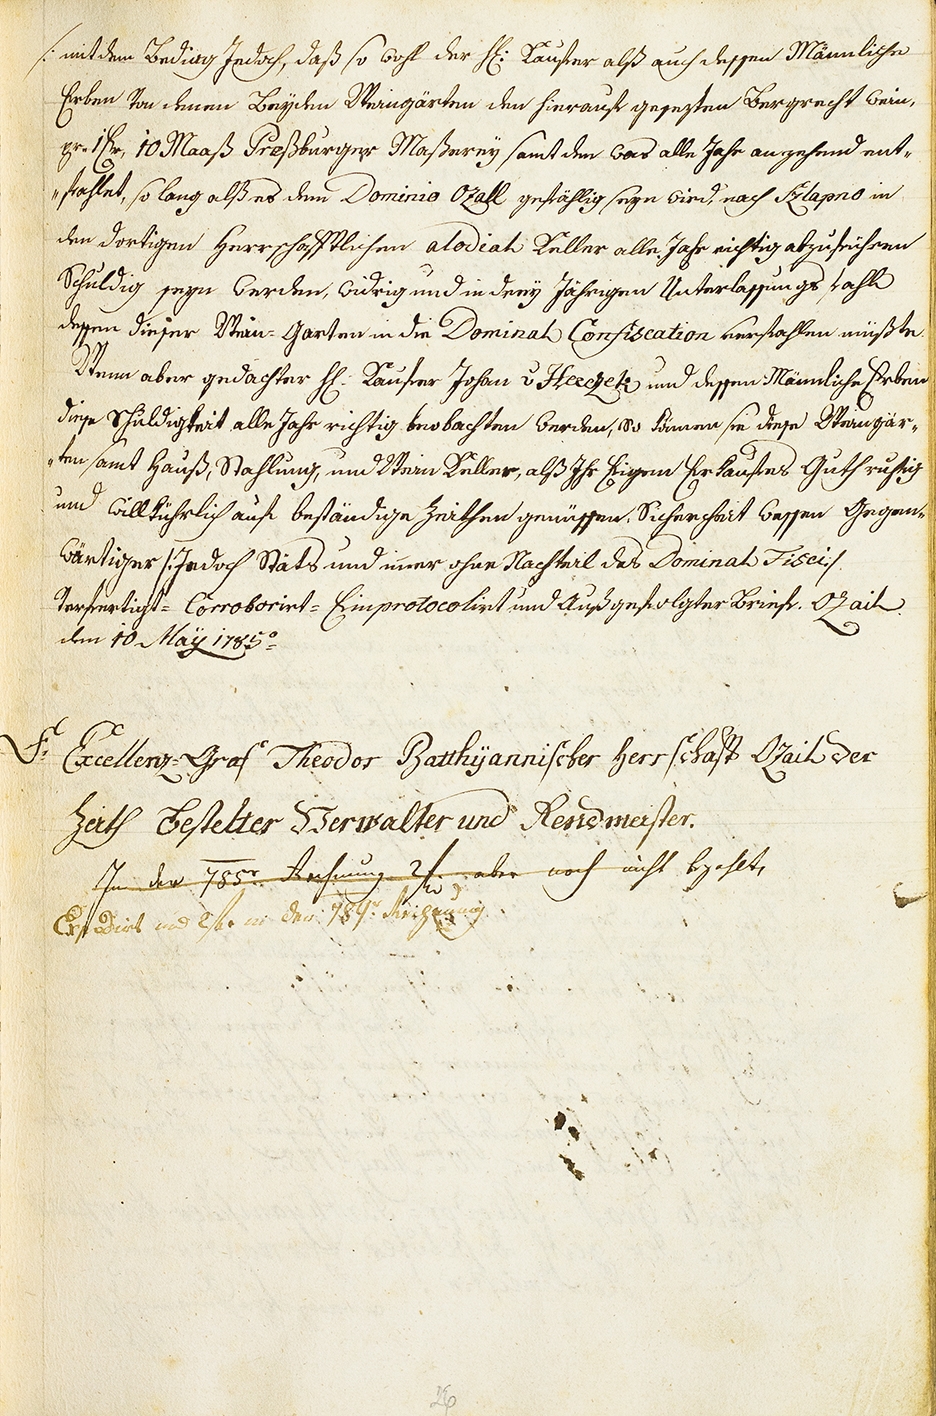 /: mit dem Beding Jedoch, daß so wohl der H: Kaufer alß auch dessen Männliche
Erben Von denen Beyden Weingärten den hierauf gesezten Bergrecht Wein,
pr 10 Maaß Preßburger Maßerey samt den was alle Jahr angehend ent-
"fahlet, so lang alß es dem Dominio Ozall gefählig seyn wird, nach Szlapno in
den dortigen Herrschafftlichen alodial Keller alle Jahr richtig abzuführen
Schuldig seyn werden, widrig und in drey Jährigen Unterlassungs fahle
dessen dieser Wein-Garten in die Dominal Confiscation verfahlen müßte.
Wenn aber gedachter H: Kaufer Johan v und dessen Männliche Erben
diese Schuldigkeit alle Jahr richtig beobachten werden, So können sie diese Weingär-
"ten samt Hauß, Stahlung, und Wein Keller, alß Ihr Eigen Erkauftes Guth ruhig
und willkührlich auf beständige Zeithen genüssen. Sicherheit wessen Gegen-
wärtiger /: Jedoch Stäts und imer ohne Nachteil des Dominal Fisci :/
Verfertigt- Corroborirt- Einprotocolirt und Außgefolgter Brief. Ozail
den 10 Maÿ 1785
Excellenz Graf Theodor Batthÿannischer Herrschaft Ozail der
Zeith Bestelter Verwalter und Rendmeister.
In der 785r Rechnung aber noch nicht bezahlt,
in der Rechnung
26